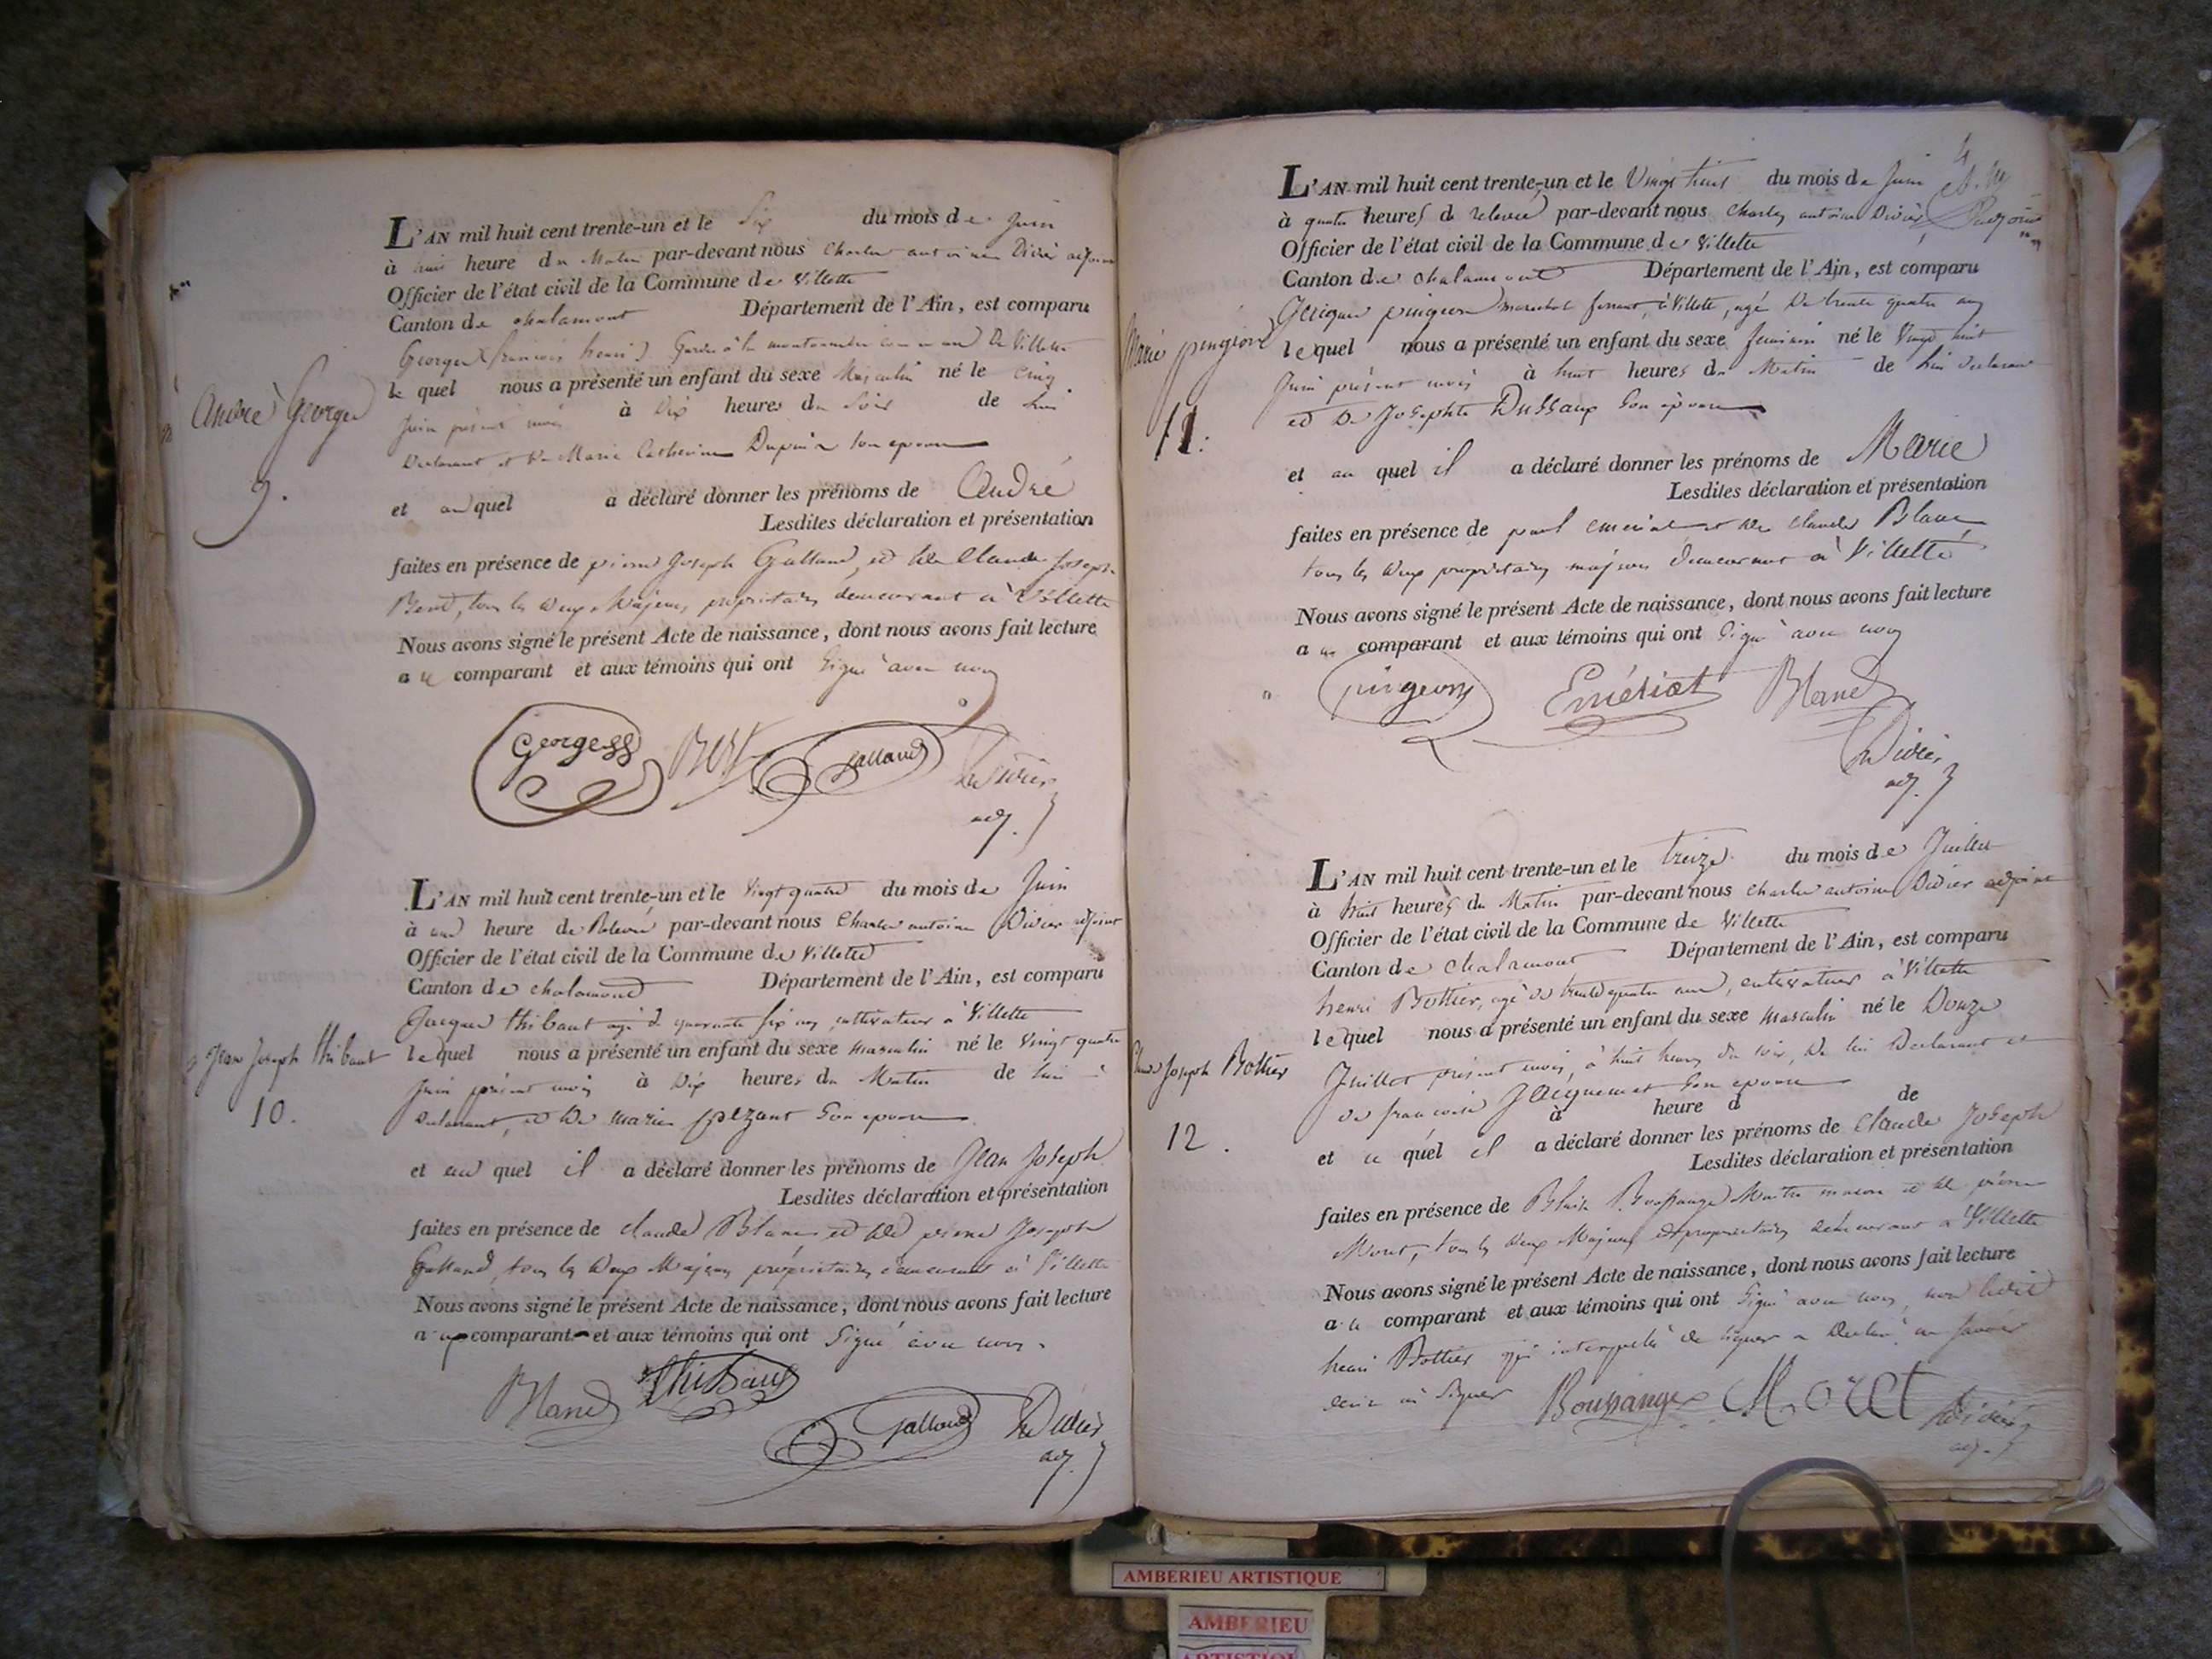 L'AN mil huit cent trente-un et le Six du mois de Juin
à huit heure du Matin par-devant nous Charles antoine Didier adjoint
Officier de l'état civil de la Commune de Villette
Canton de chalamont Département de l'Ain, est comparu
Georges (françois henri) Garde à la de Villette
le quel nous a présenté un enfant du sexe Masculin né le cinq
Juin présent mois à Dix heures du Soir de lui
Declarant et de Marie Catherine Dupuis son epouse
André Georges
9.
et au quel a déclaré donner les prénoms de André
Lesdites déclaration et présentation
faites en présence de pierre Joseph Galland, et de Claude Joseph
Bert, tous les deux Majeurs, propriétaires demeurant à Villette
Nous avons signé le présent Acte de naissance, dont nous avons fait lecture
au comparant et aux témoins qui ont Signé avec nous
Georges Bert Galland Didier
adj.
L'AN mil huit cent trente-un et le Vingt quatre du mois de Juin
à une heure de Relevé par-devant nous Charles antoine Didier adjoint
Officier de l'état civil de la Commune de Villette
Canton de chalamont Département de l'Ain, est comparu
Jacques thibaut agé de quarante six ans, cultivateur à Villette
le quel nous a présenté un enfant du sexe masculin né le Vingt quatre
Juin présent mois à Dix heures du Matin de lui
Declarant, et de marie son epouse
Jean Joseph thibaut
10.
et au quel il a déclaré donner les prénoms de Jean Joseph
Lesdites déclaration et présentation
faites en présence de claude Blanc et de pierre Joseph
Galland, tous les deux Majeurs propriétaires demeurant à Villette
Nous avons signé le présent Acte de naissance, dont nous avons fait lecture
au comparant et aux témoins qui ont Signé avec nous.
Blanc Thibaut
Galland Didier
adj.
4
L'AN mil huit cent trente-un et le Vingt huit du mois de Juin
à quatre heures de relevée par-devant nous Charles antoine Didier adjoint
Officier de l'état civil de la Commune de Villette
Canton de chalamont Département de l'Ain, est comparu
Jacques pingeon marechal ferrant, à Villette, agé de trente quatre ans
le quel nous a présenté un enfant du sexe feminin né le Vingt huit
Juin présent mois à huit heures du Matin de lui declarant
et de Josephte Dussaup son épouse
Marie pingeon
11.
et au quel il a déclaré donner les prénoms de Marie
Lesdites déclaration et présentation
faites en présence de paul emeriat et de claude Blanc
tous les deux propriétaires majeurs demeurant à Villette
Nous avons signé le présent Acte de naissance, dont nous avons fait lecture
au comparant et aux témoins qui ont Signé avec nous
pingeon Emériat Blanc
Didier
adj.
L'AN mil huit cent trente-un et le treize du mois de Juillet
à huit heures du Matin par-devant nous charles antoine Didier adjoint
Officier de l'état civil de la Commune de Villette
Canton de Chalamont Département de l'Ain, est comparu
henri Bottier, agé de trente quatre ans, cultivateur à Villette
le quel nous a présenté un enfant du sexe masculin né le Douze
Juillet présent mois, à huit heures du soir, de lui Declarant et
de francoise Jacquemet son epouse
à heure d de
Claude Joseph Bottier
12.
et au quel il a déclaré donner les prénoms de Claude Joseph
Lesdites déclaration et présentation
faites en présence de Boussange Maitre macon et de pierre
Moret, tous les deux Majeurs et propriétaires demeurant à Villette
Nous avons signé le présent Acte de naissance, dont nous avons fait lecture
au comparant et aux témoins qui ont Signé avec nous, non ledit
henri Bottier qui interpellé de signer a Declaré ne savoir
ecrire ni Signer Boussange Moret Didier
adj.
AMBERIEU ARTISTIQUE
AMBERIEU
ARTISTIQUE